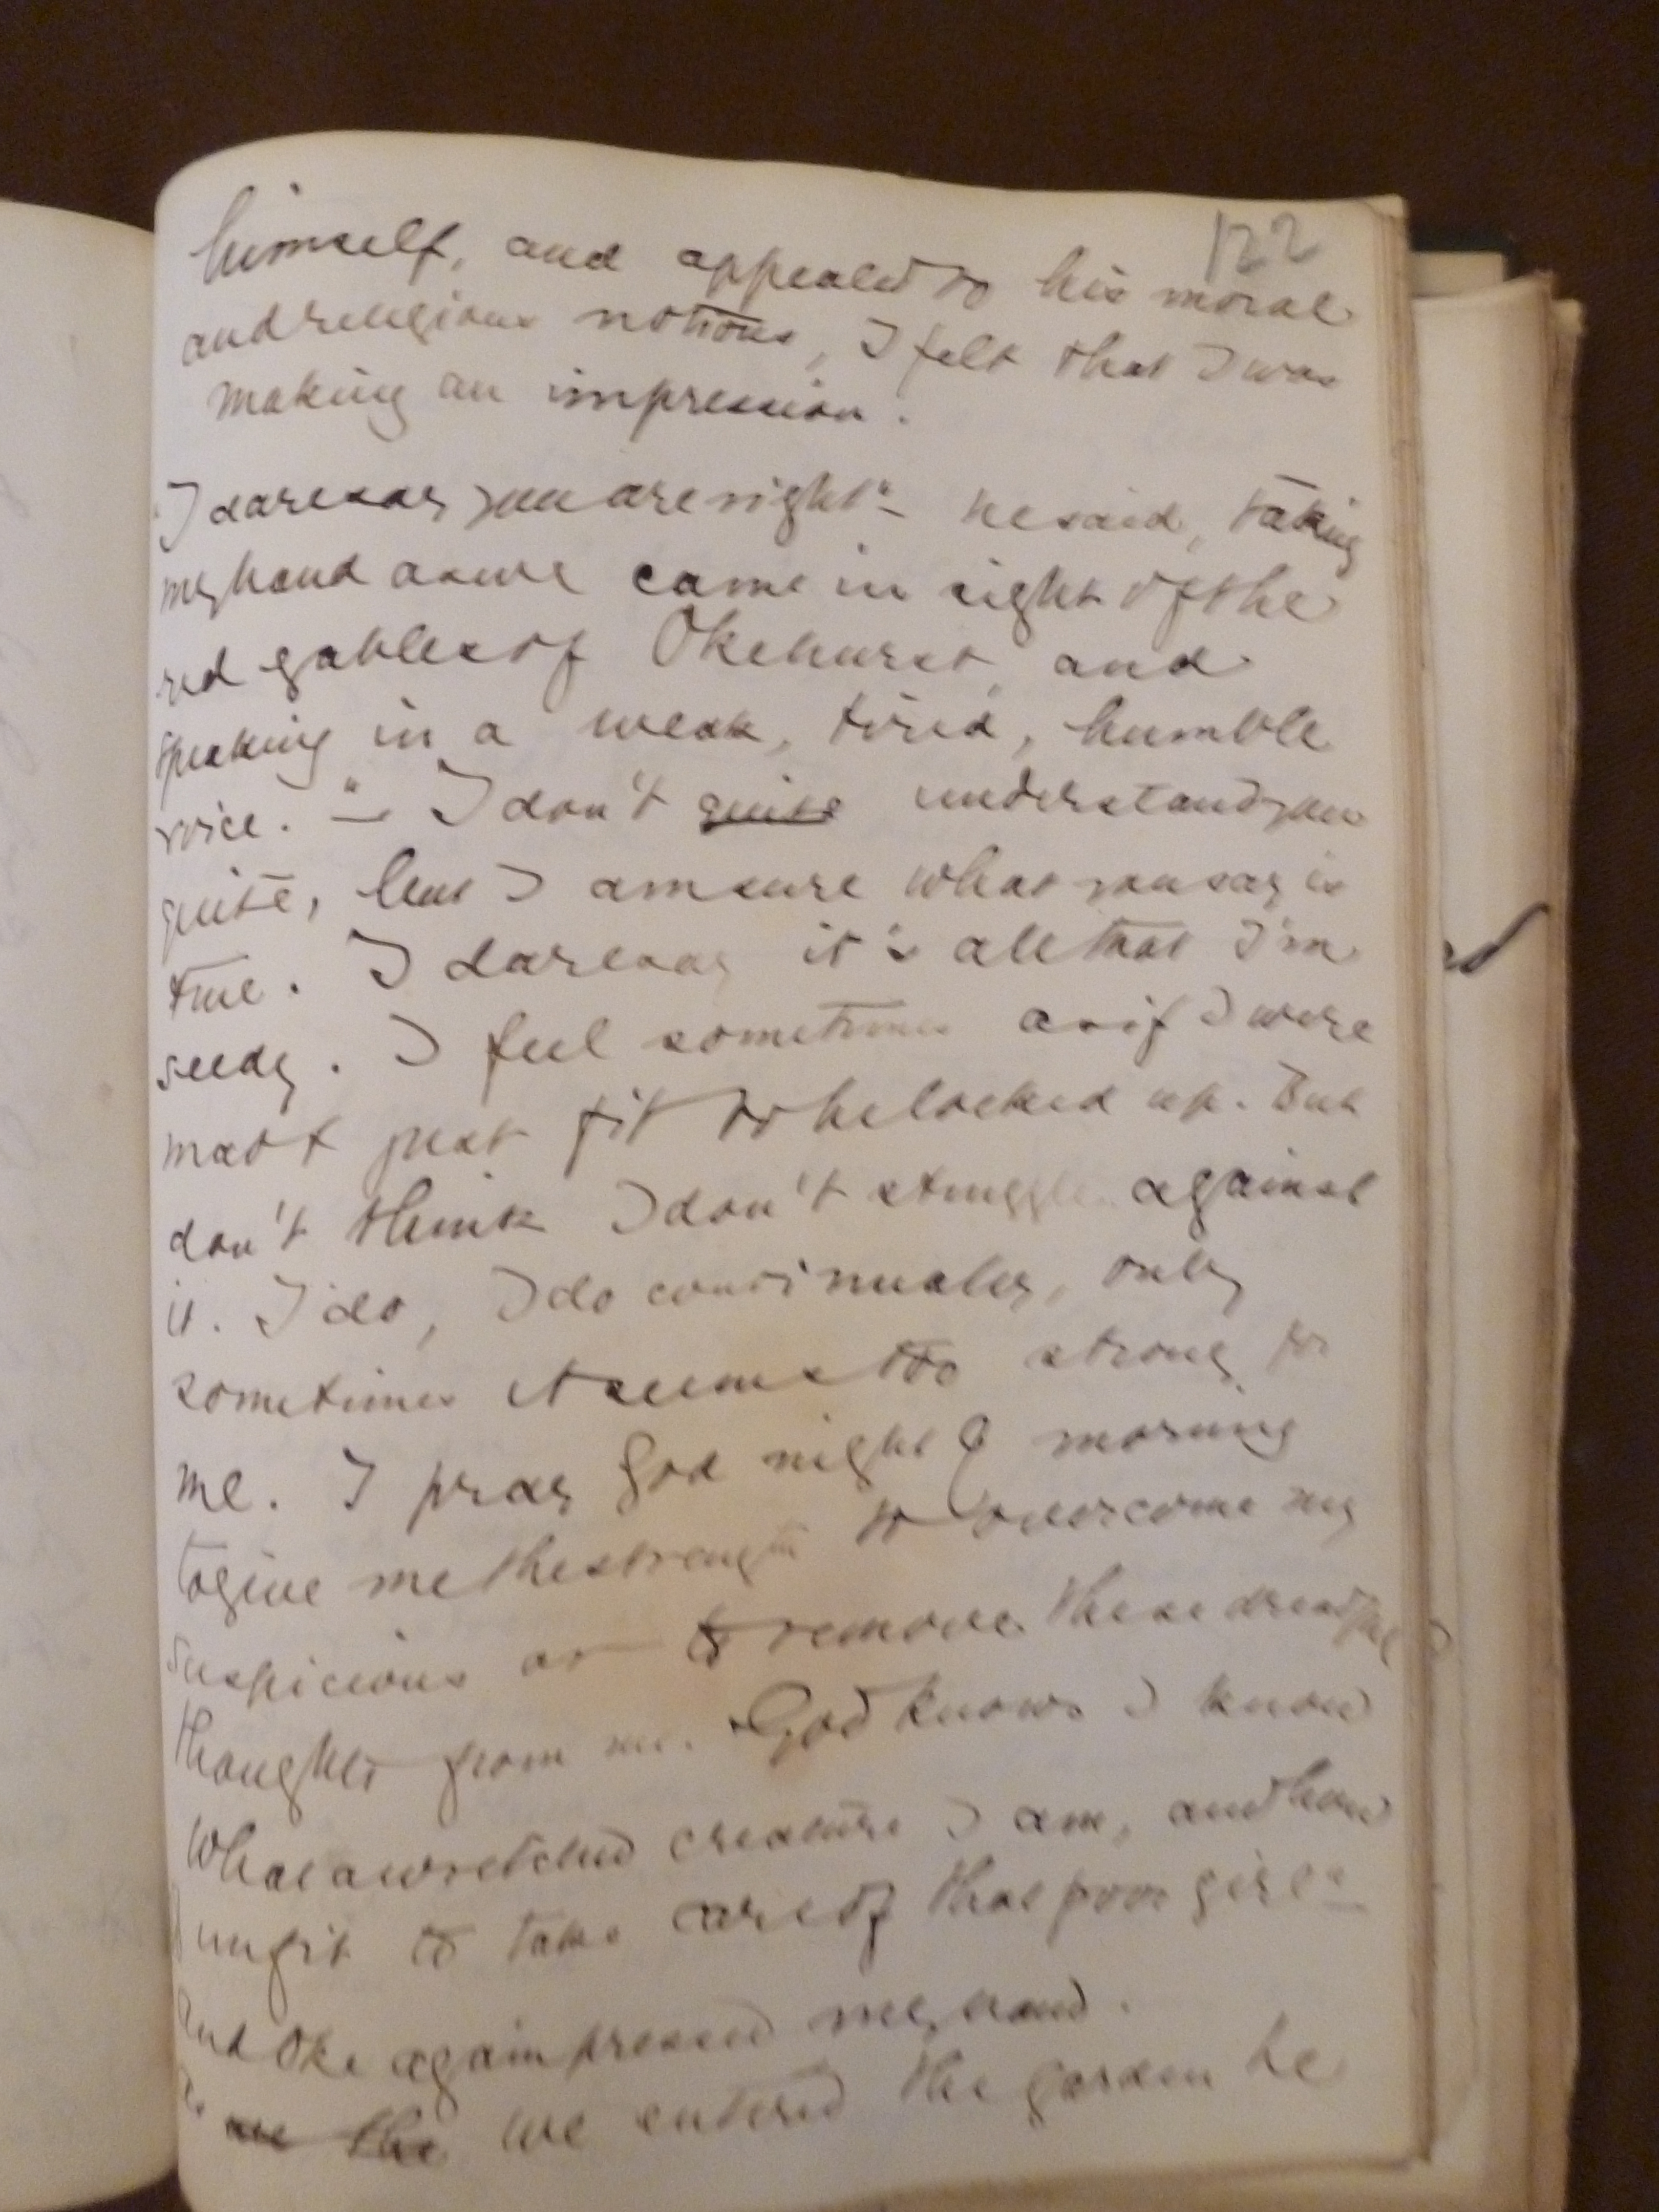 122
himself, and appealed to his moral
and religious notions, I felt that I was
making an impression.
"I daresay you are right" – he said, taking
my hand as we came in sight of the
red gables of Okehurst, and
speaking in a weak, tired, humble
voice. " – I don't quite understand you
quite, but I am sure what you say is
true. I daresay it's all that I'm
seedy. I feel sometimes as if I were
mad & just fit to be locked up. But
don't think I don't struggle against
it. I do, I do continually, only
sometimes it seems too strong for
me. I pray God night & morning
to give me the strength to overcome my
suspicions or to remove these dreadful
thoughts from me. God knows I know
what a wretched creature I am, and how
unfit to take care of that poor girl" –
And Oke again pressed my hand.
As we the we entered the garden he